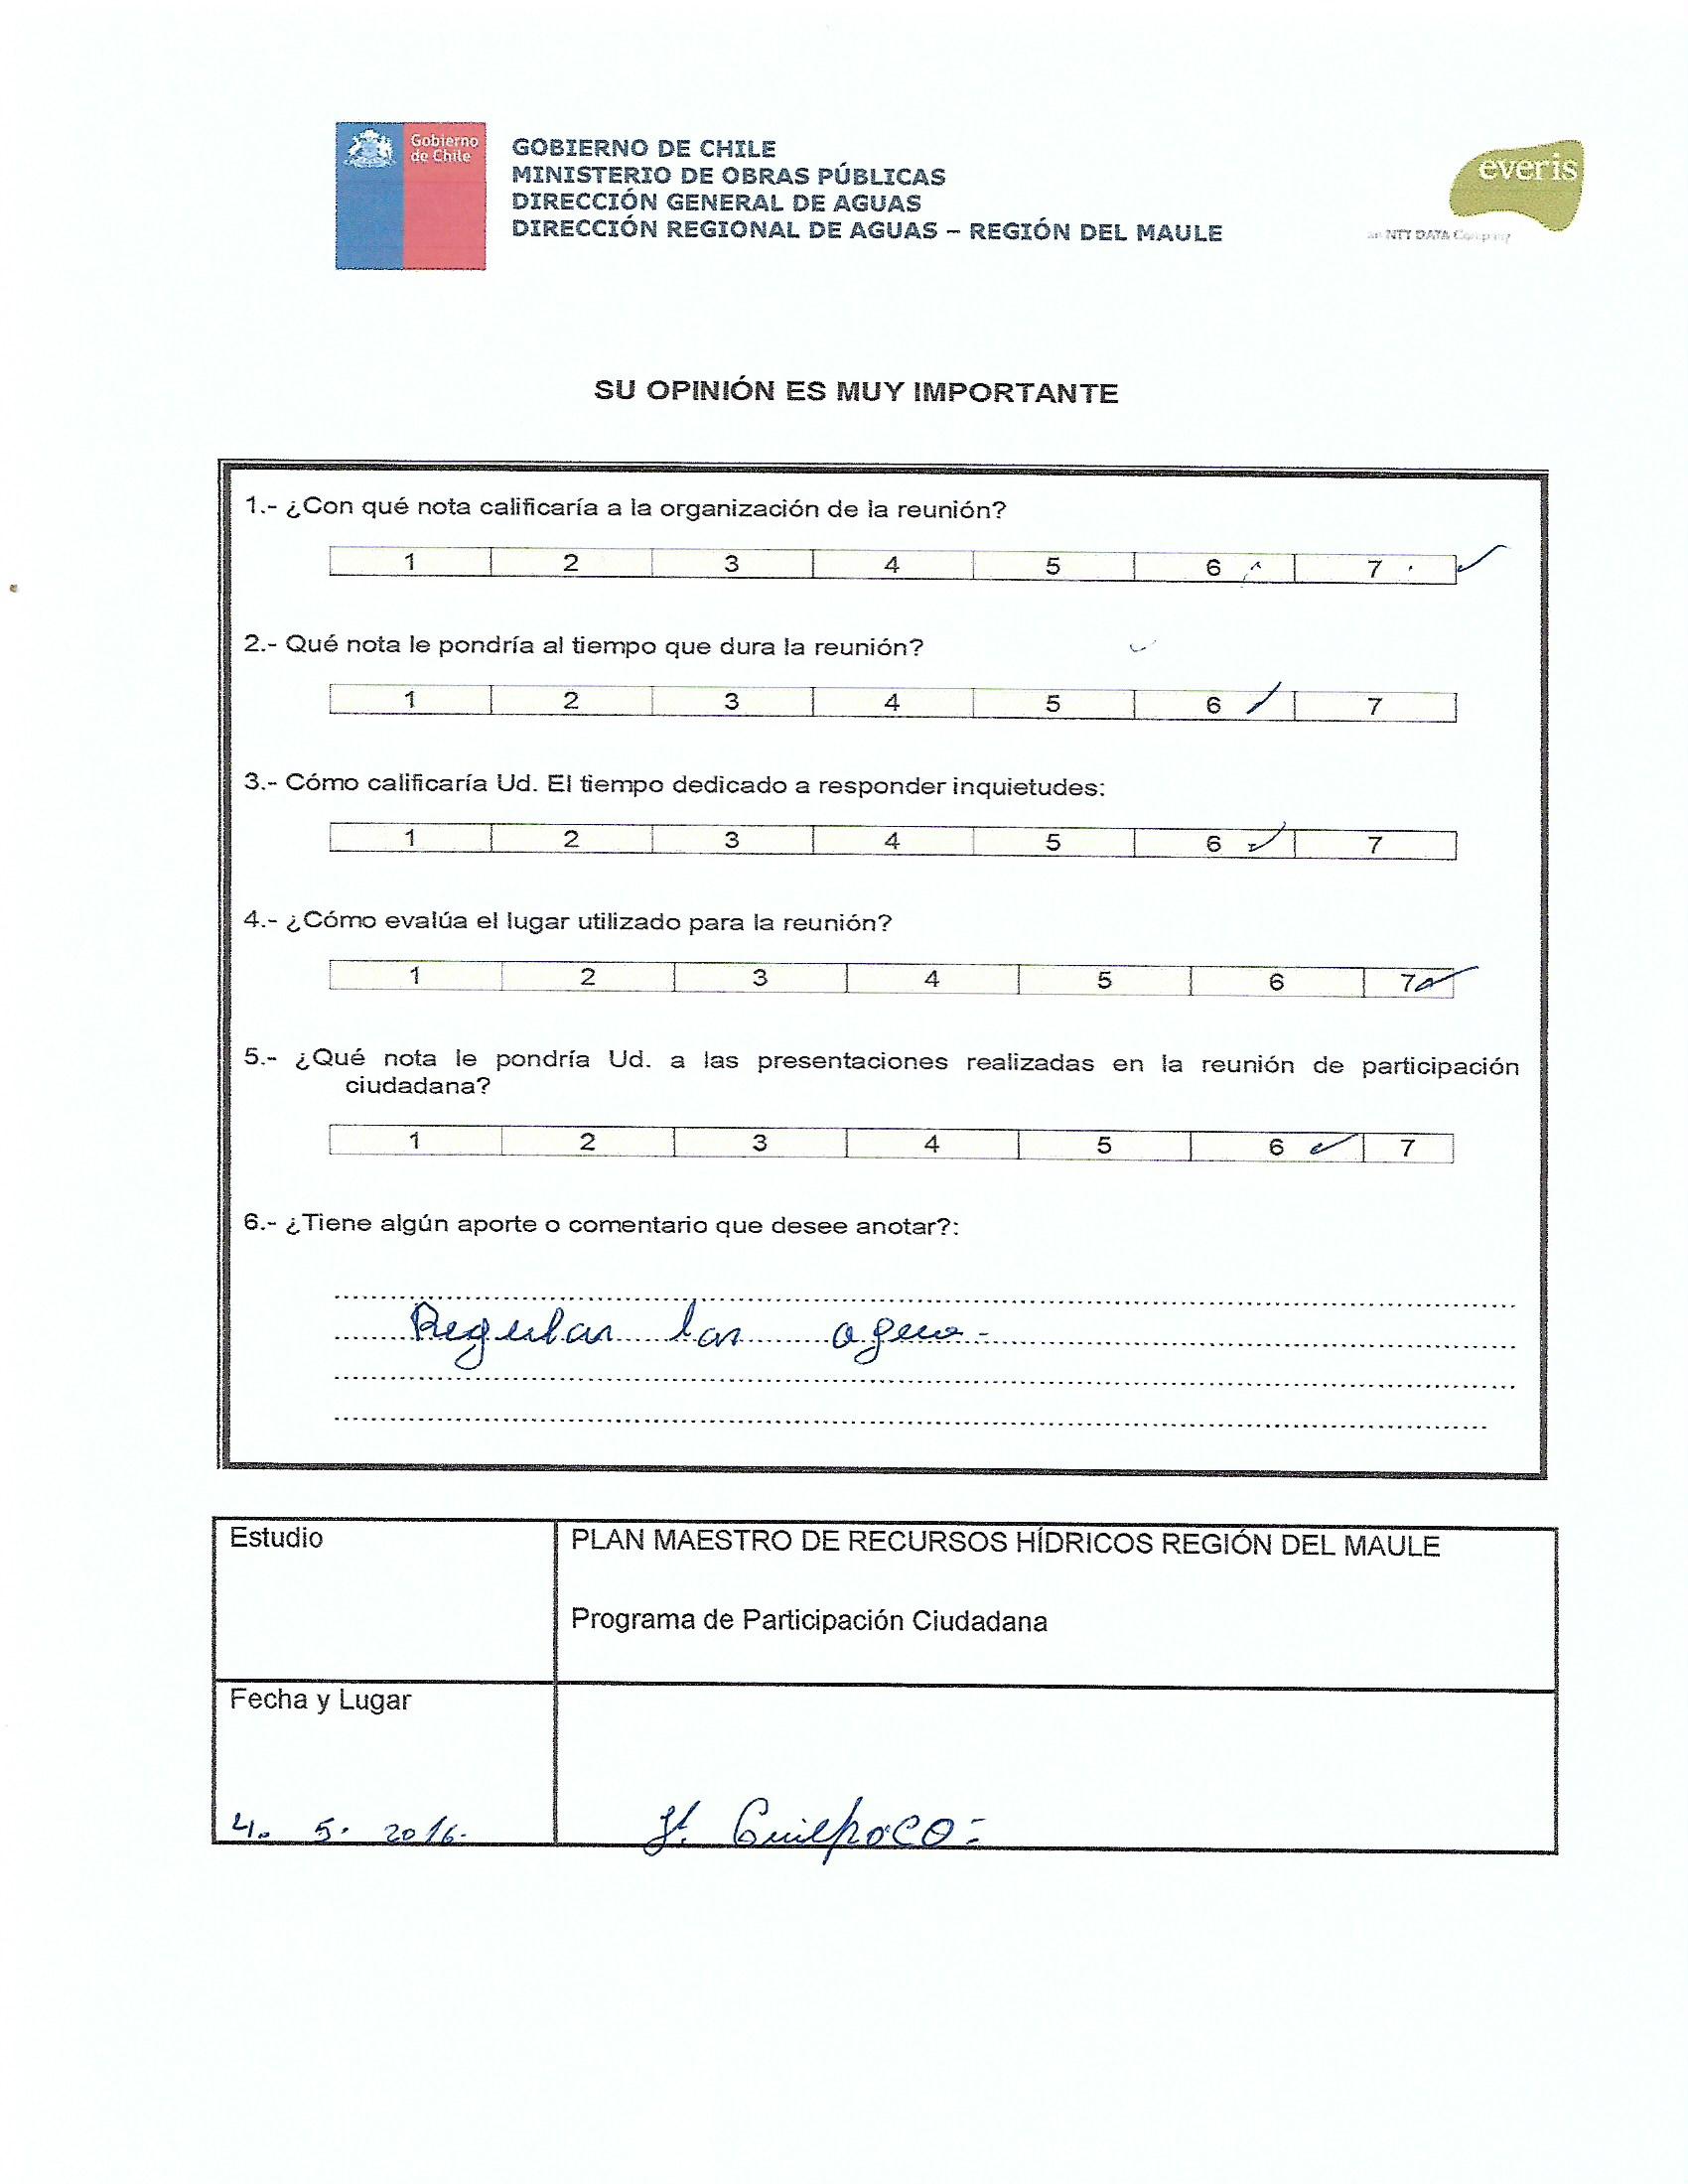 Gobierno
de Chile
GOBIERNO DE CHILE
MINISTERIO DE OBRAS PÚBLICAS
DIRECCIÓN GENERAL DE AGUAS
DIRECCIÓN REGIONAL DE AGUAS – REGIÓN DEL MAULE
everis
an NTT DATA Company
SU OPINIÓN ES MUY IMPORTANTE
1.- ¿Con qué nota calificaría a la organización de la reunión?
1 2 3 4 5 6 7
2.- Qué nota le pondría al tiempo que dura la reunión?
1 2 3 4 5 6 7
3.- Cómo calificaría Ud. El tiempo dedicado a responder inquietudes:
1 2 3 4 5 6 7
4.- ¿Cómo evalúa el lugar utilizado para la reunión?
1 2 3 4 5 6 7
5.- ¿Qué nota le pondría Ud. a las presentaciones realizadas en la reunión de participación
ciudadana?
1 2 3 4 5 6 7
6.- ¿Tiene algún aporte o comentario que desee anotar?:
Regular las
Estudio PLAN MAESTRO DE RECURSOS HÍDRICOS REGIÓN DEL MAULE
Programa de Participación Ciudadana
Fecha y Lugar
4. 5. 2016.